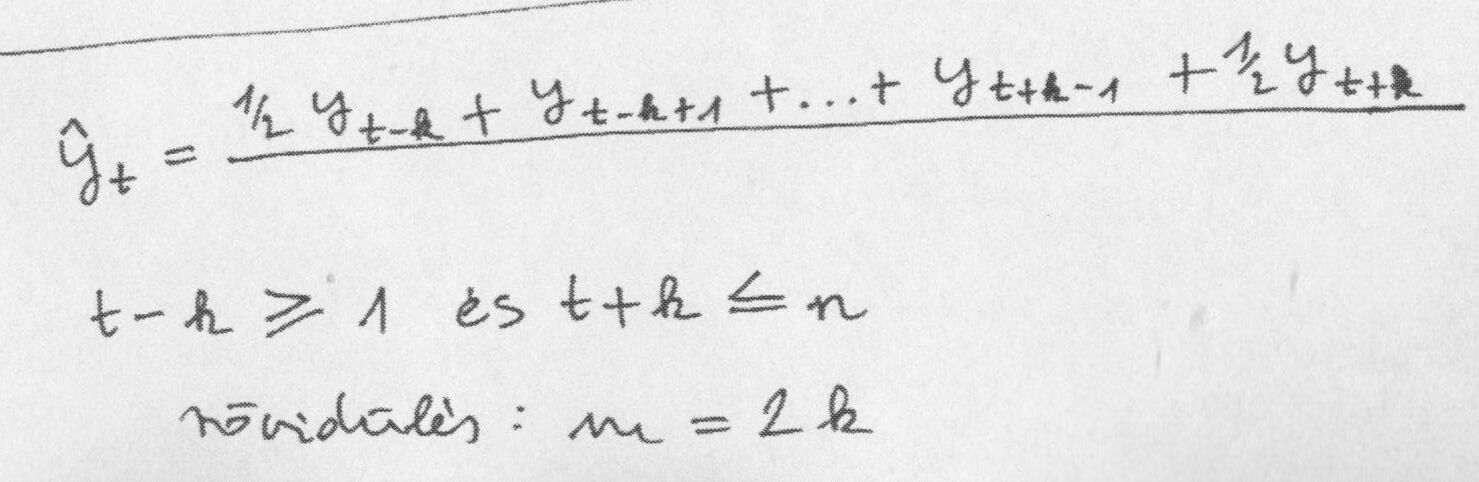 ŷ_t = ½ y_{t-k} + y_{t-k+1} + ... + y_{t+k-1} + ½ y_{t+k}
t - k ≥ 1 és t + k ≤ n
rövidülés : m = 2k